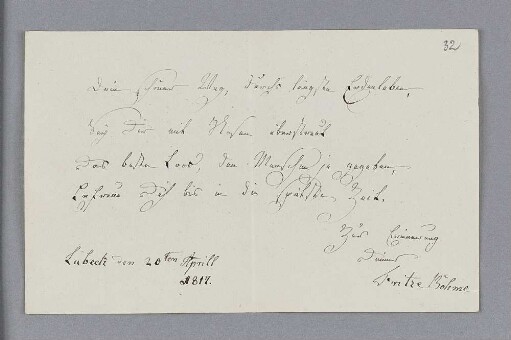 32
Dein schöner Weg, durchs längste Erdenleben,
Sey Dir mit Rosen überstreut
Das beste Loos, den Menschen je gegeben,
Erfreue Dich bis in die späthste Zeit.
Zur Erinnerung
Deines
Fritze Böhme
Lübeck den 20ten Aprill
1817.